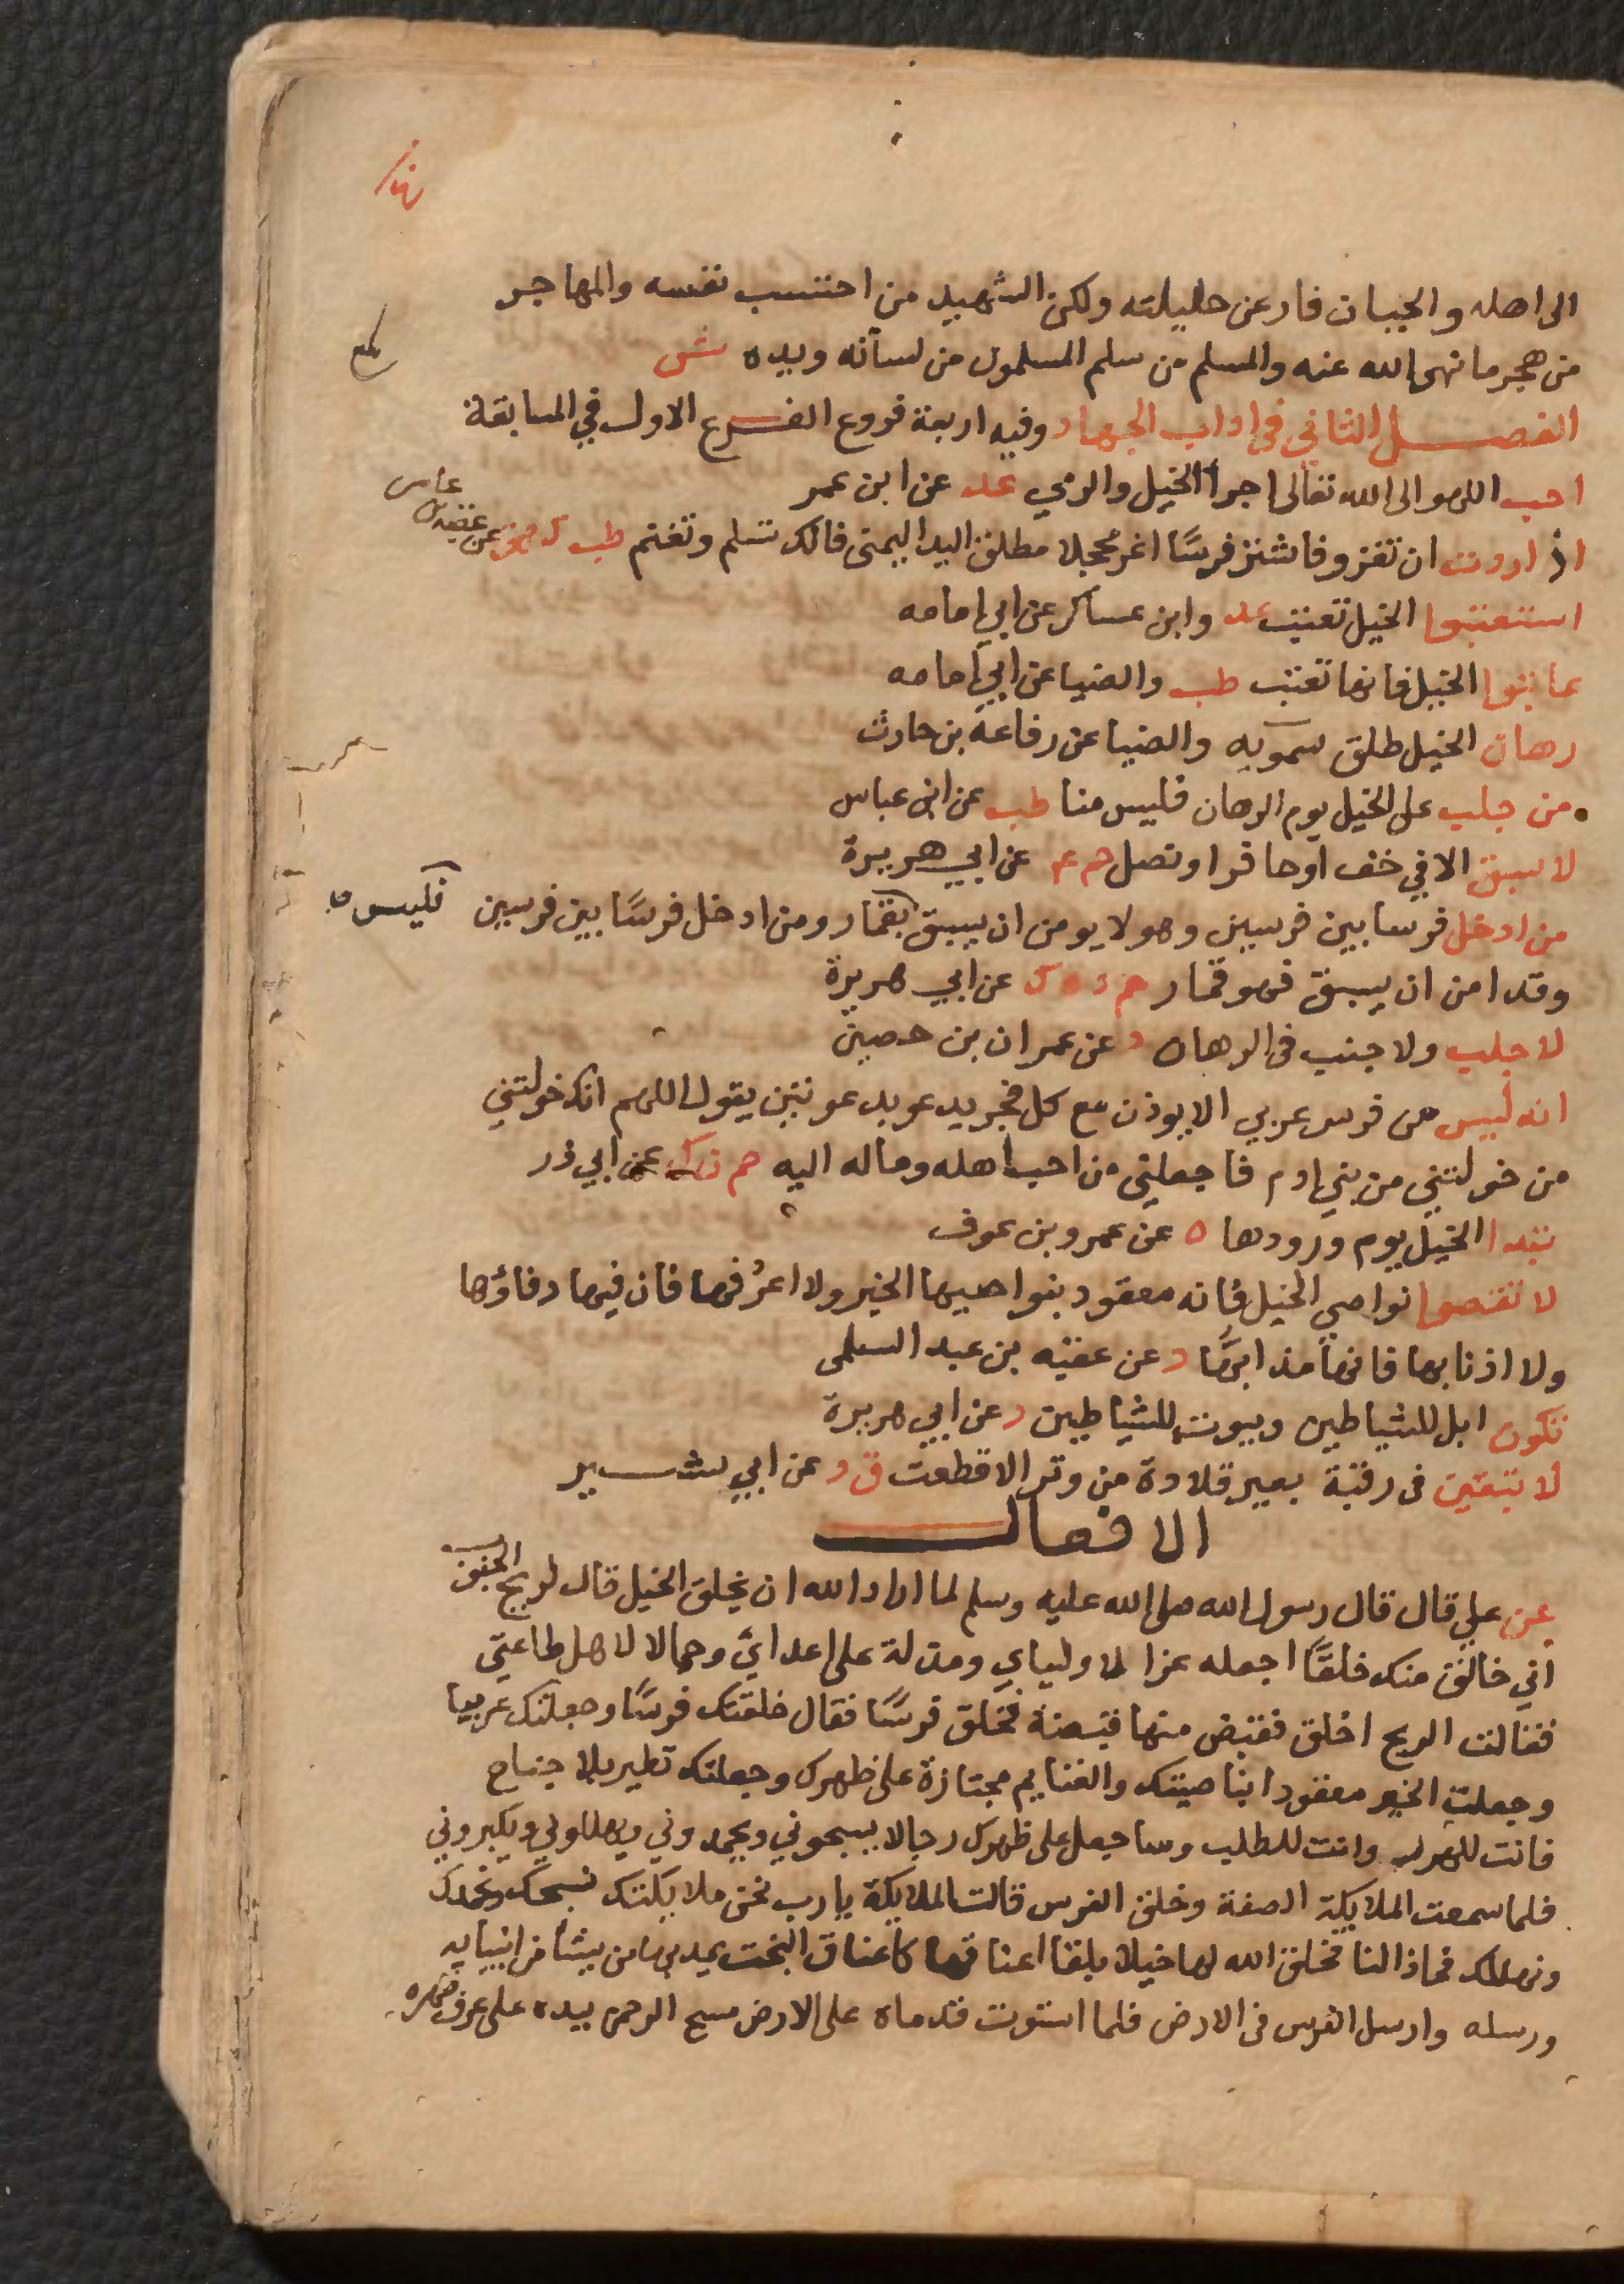 الى اهله والجبان فار عن حليلته ولكن الشهيد من احتسب نفسه والمهاجر
من هجر ما نهى الله عنه والمسلم من سلم المسلمون من لسانه ويده ش
الفصل الثاني في اداب الجهاد وفيه اربعة فروع الفرع الاول في المسابقة
احب اللهو الى الله تعالى اجرا الخيل والرمي عد عن ابن عمر
اذا اردت ان تغزو فاشتر فرسًا اغر محجلا مطلق اليد اليمنى فانك تسلم وتغنم طب ك هق عن عقبة بن عامر
استعتبوا الخيل تعتب عد وابن عساكر عن ابي امامه
عاتبوا الخيل فانها تعتب طب والضيا عن ابي امامه
رهان الخيل طلق سمويه والضيا عن رفاعة بن حارث
من جلب على الخيل يوم الرهان فليس منا طب عن ابن عباس
لا سبق الا في خف او حافر او نصل حم ع عن ابي هريرة
من ادخل فرسا بين فرسين وهو لا يومن ان يسبق فليس بقمار ومن ادخل فرسًا بين فرسين
وقد امن ان يسبق فهو قمار حم د ه ك عن ابي هريرة
لا جلب ولا جنب في الرهان د عن عمران بن حصين
انه ليس من فرس عربي الا يوذن مع كل فجر يدعو بدعوتين يقول اللهم انك خولتني
من خولتني من بني ادم فاجعلني من احب اهله وماله اليه حم ن ك عن ابي ذر
تبدا الخيل يوم ورودها ه عن عمرو بن عوف
لا تقصوا نواصي الخيل فانه معقود بنواصيها الخير ولا اعرُفها فان فيها دفاؤها
ولا اذنابها فانها مذابها د عن عقبه بن عبد السلمى
تكون ابل للشياطين وبيوت للشياطين د عن ابي هريرة
لا تبقين في رقبة بعير قلادة من وتر الا قطعت ق د عن ابي بشير
الافعال
عن علي قال قال رسول الله صلى الله عليه وسلم لما اراد الله ان يخلق الخيل قال لريح الجنوب
اني خالق منك خلقًا اجعله عزا لاولياي ومذلة على اعداي وجمالا لاهل طاعتي
فقالت الريح اخلق فقبض منها قبضة فخلق فرسًا فقال خلقتك فرسًا وجعلتك عربيا
وجعلت الخير معقودا بناصيتك والغنايم مجتازة على ظهرك وجعلتك تطير بلا جناح
فانت للهرب وانت للطلب وساجعل على ظهرك رجالا يسبحوني ويحمدوني ويهللوني ويكبروني
فلما سمعت الملايكة الصفة وخلق الفرس قالت الملايكة يارب نحن ملايكتك نسبحك ونحمدك
ونهللك فماذا لنا فخلق الله لها خيلا بلقا اعناقها كاعناق البخت يمد بها من يشأ من انبيايه
ورسله وارسل الفرس في الارض فلما استوت قدماه على الارض مسح الرحمن بيده على عرف ظهره